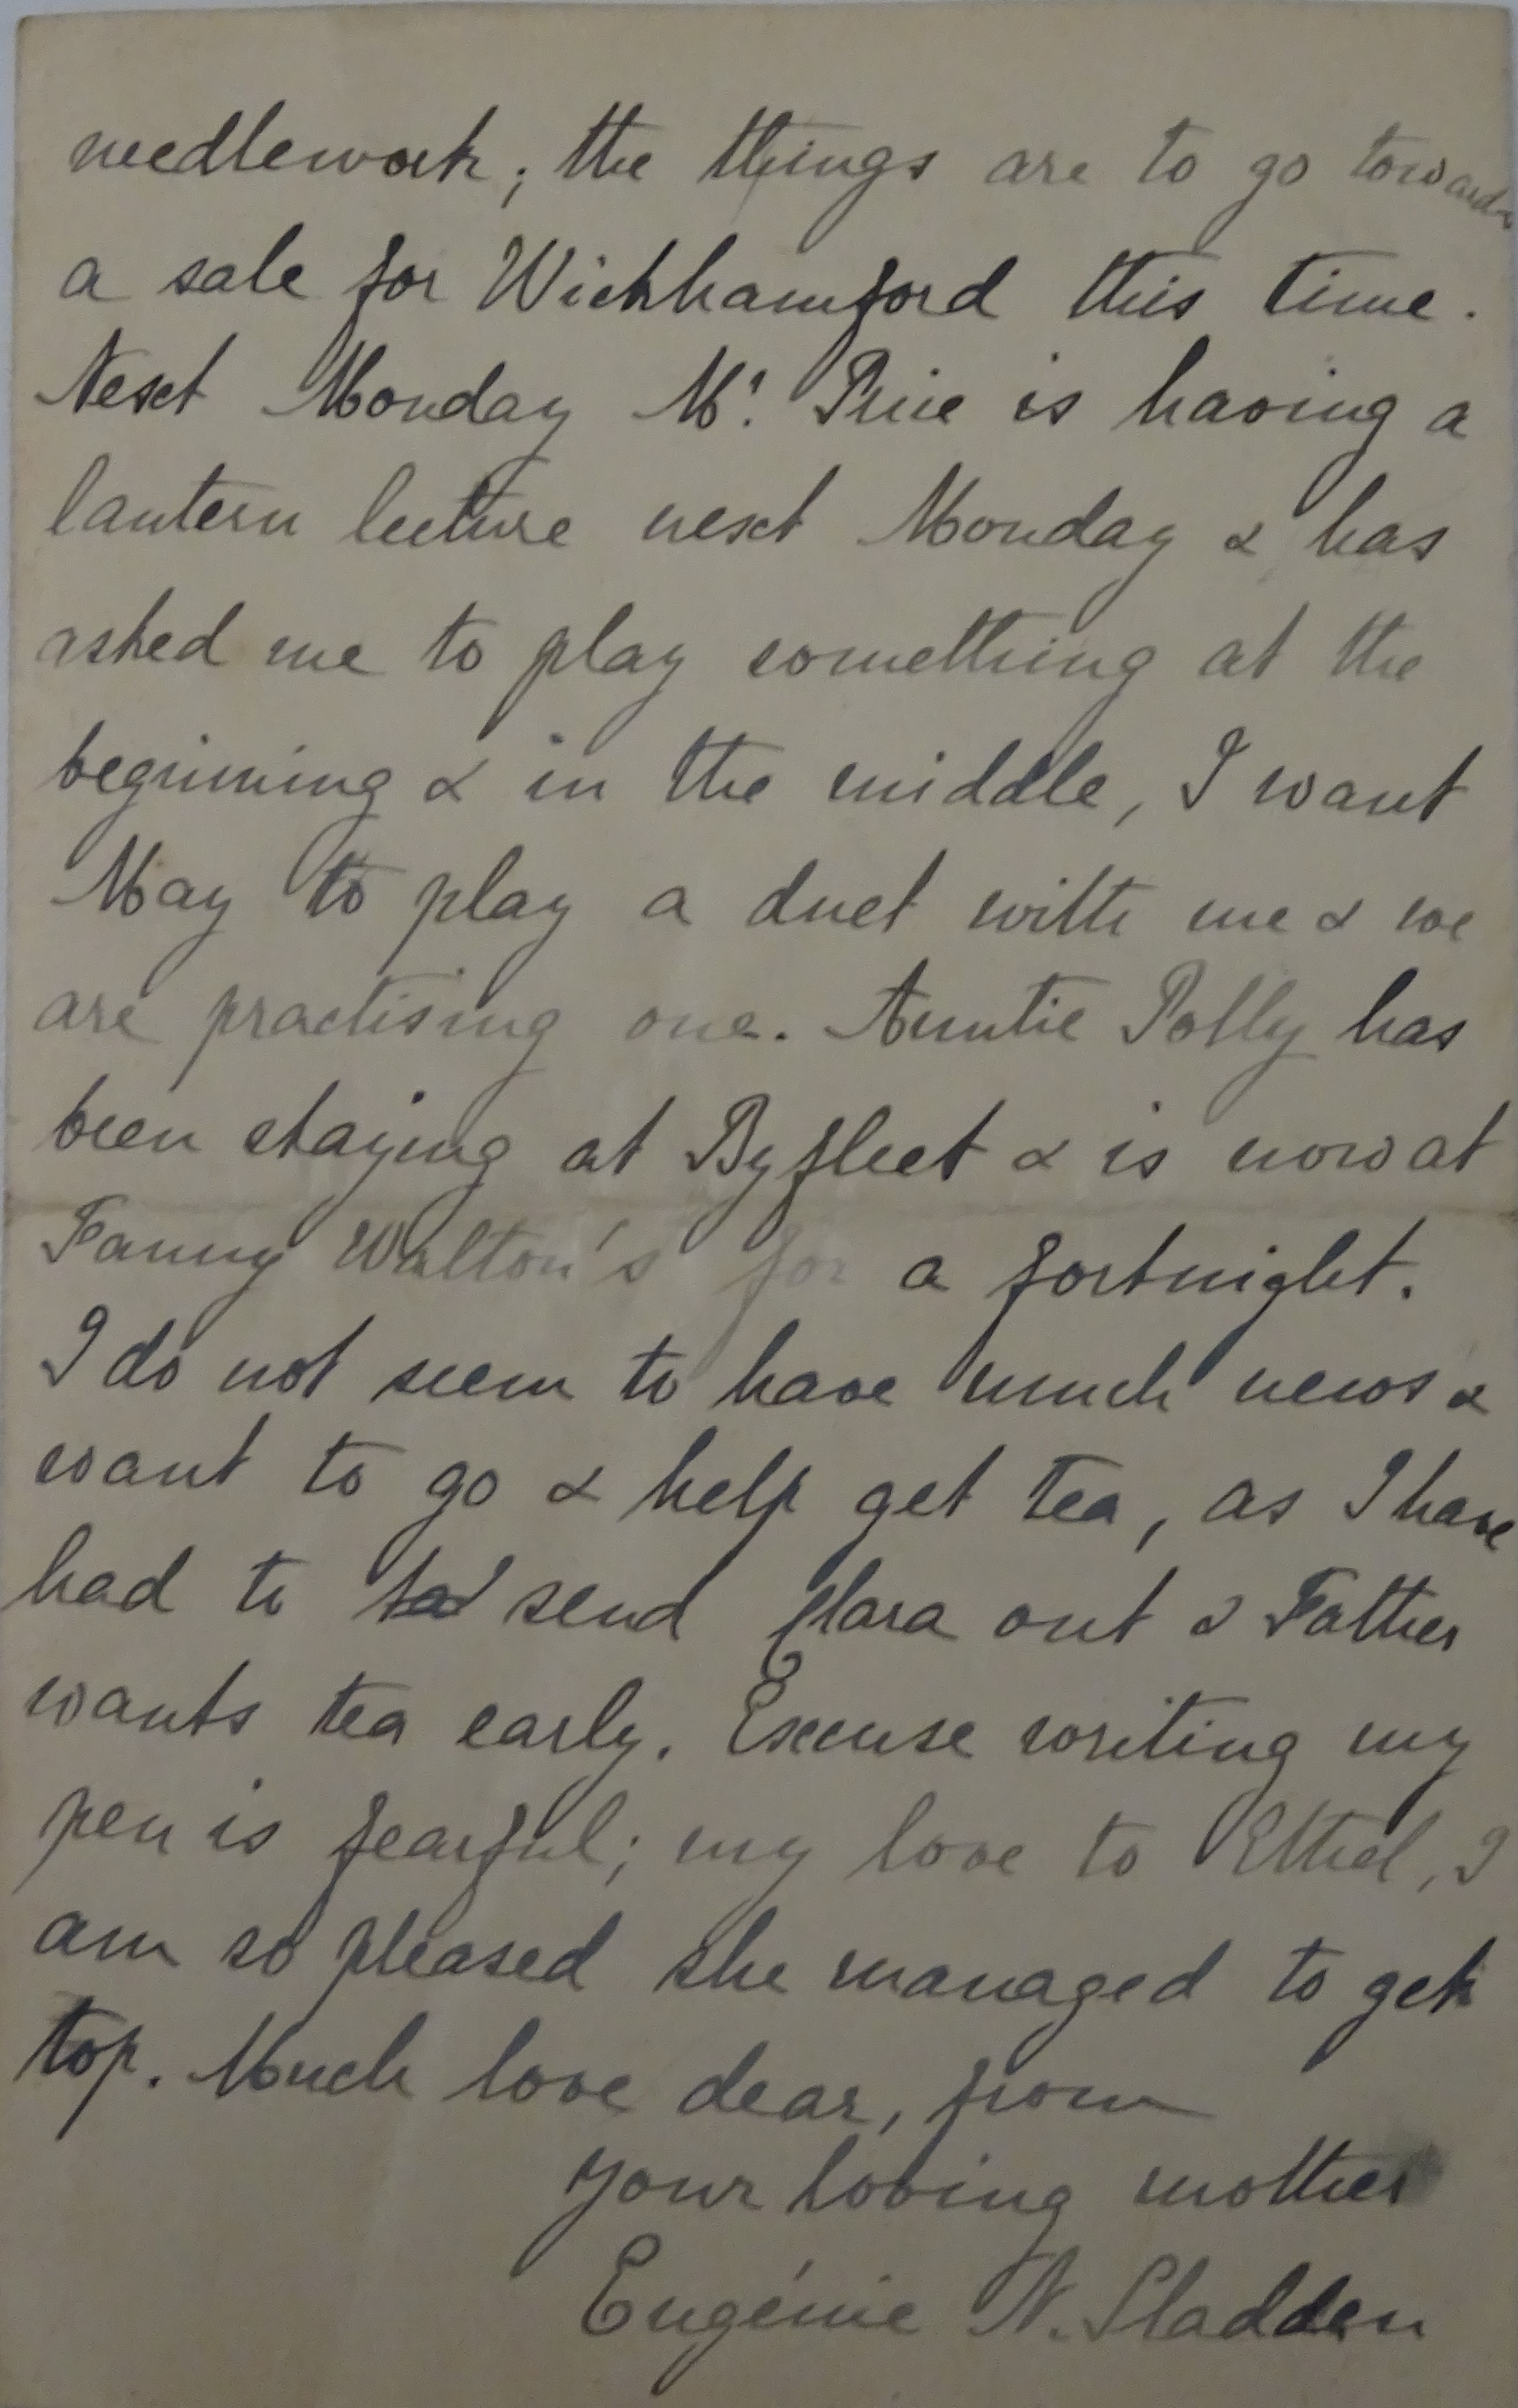 needlework; the things are to go towards
a sale for Wickhamford this time.
Next Monday Mr. Price is having a
lantern lecture next Monday & has
asked me to play something at the
beginning & in the middle, I want
May to play a duet with me & we
are practising one. Auntie Polly has
been staying at Byfleet & is now at
Fanny Walton's for a fortnight.
I do not seem to have much news &
want to go & help get tea, as I have
had to send Clara out & Father
wants tea early. Excuse writing my
pen is fearful; my love to Ethel, I
am so pleased she managed to get
top. Much love dear, from
your loving mother
Eugénie N. Sladden